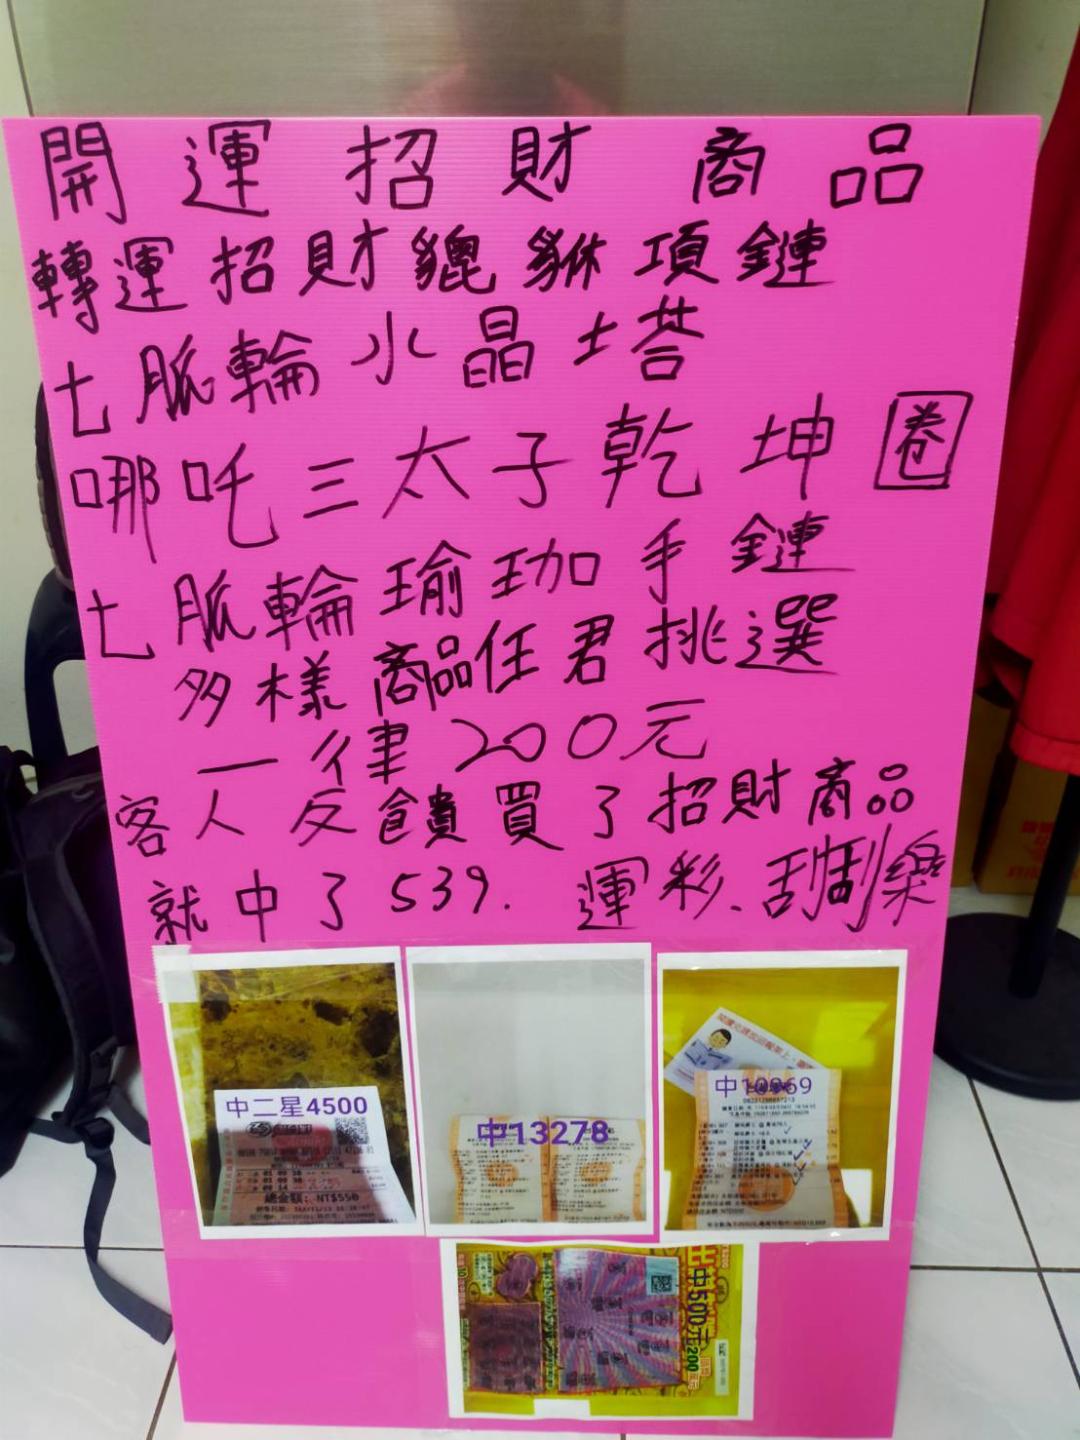 開運招財商品
轉運招財貔貅項鏈
七脈輪水晶塔
哪吒三太子乾坤圈
七脈輪瑜珈手鏈
多樣商品任君挑選
一律200元
客人反饋買了招財商品
就中了539.運彩、刮刮樂
中二星4500
總金額：NT$550
中13278
中10969
中500元
200